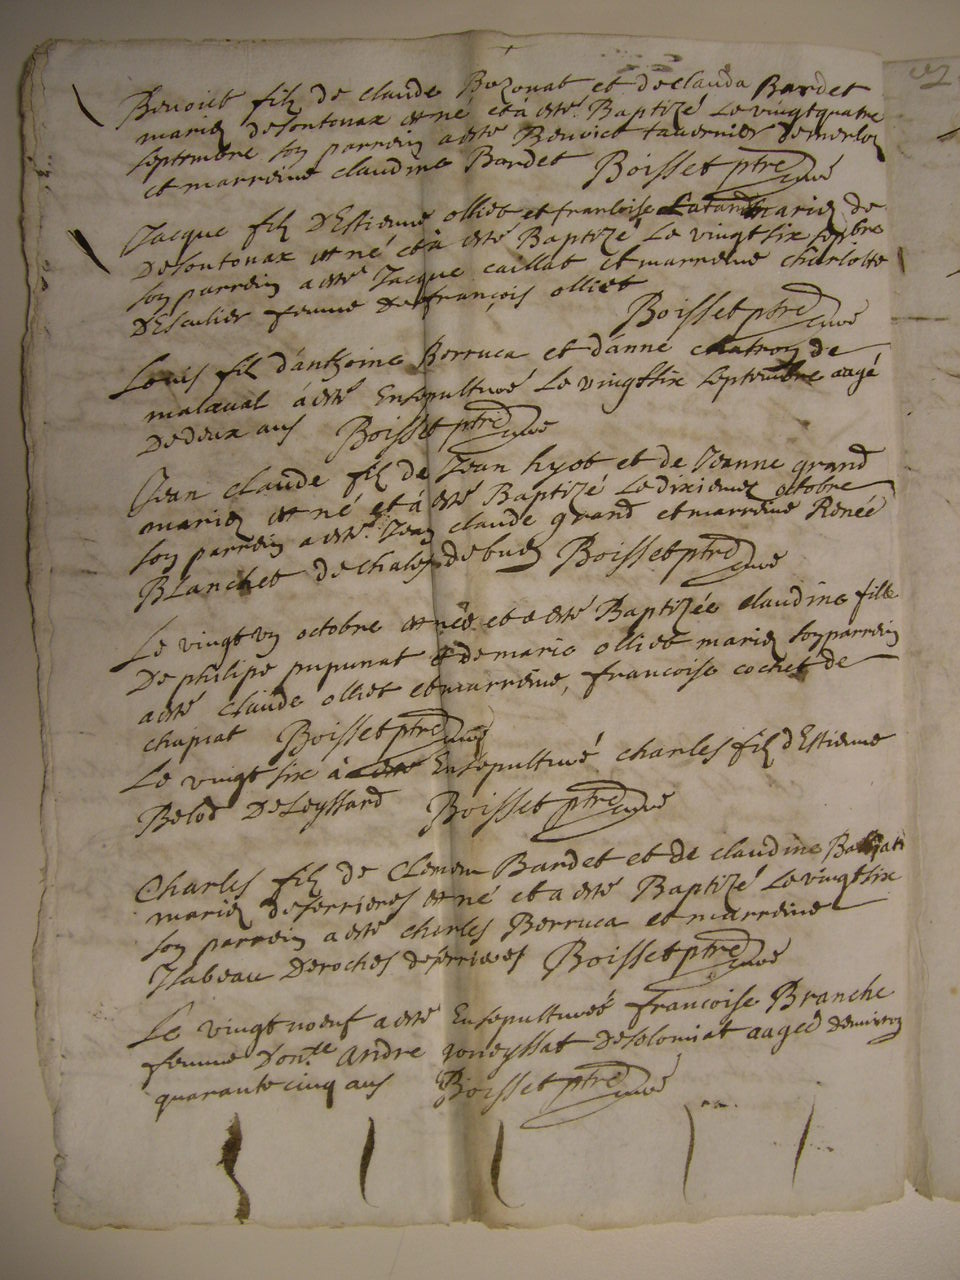 Benoict filz de claude Bozonat et declauda Bardet
mariez desontonax est né et à esté Baptizé Le vingtquatre
septembre son parrein a esté Benoict tavernier demerloz
et marreine claudine Bardet Boisset ptre curé
Jacque filz D'Estienne olliet et francoise mariez de
desontonax est né et à esté Baptizé Le vingt six septbre
son parrein a esté Jacque caillat et marreine charlotte
D'Escalier femme de françois olliet
Boisset ptre curé
Louis filz d'anthoine Berruca et d'anne chatron de
malaval à esté Ensepulturé Le vingt six septembre aagé
De deux ans Boisset ptre curé
Jean claude filz de Jean hyot et de Jeanne grand
mariez est né et à esté Baptizé Le dixiemez octobre
son parrein a esté Jean claude grand et marreine Renée
BLanchet de Boisset ptre curé
Le vingt un octobre est née et a esté Baptizée claudine fille
De philipe pupunat et de marie olliet mariez son parrein
a esté claude olliet et marreine, francoise cochet de
chapiat Boisset ptre curé
Le vingt six à esté Ensepulturé charles filz d'Estienne
Belod De Leyssard Boisset ptre curé
Charles filz de Clemen Bardet et de claudine
mariez deserrieres est né et a esté Baptizé Le vingt six
son parrein a esté charles Berruca et marreine
Isabeau Deroches deserrieres Boisset ptre curé
Le vingt noeuf a esté Ensepulturée francoise Branche
femme D'on.te andre joneyssat Desolomiat aagée denviron
quarante cinq ans Boisset ptre curé